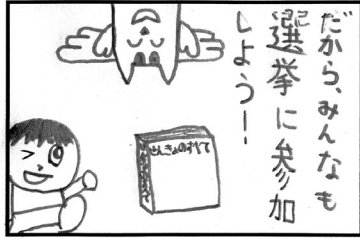 だから、みんなも
選挙に参加
しよう！
せんきょのすべて